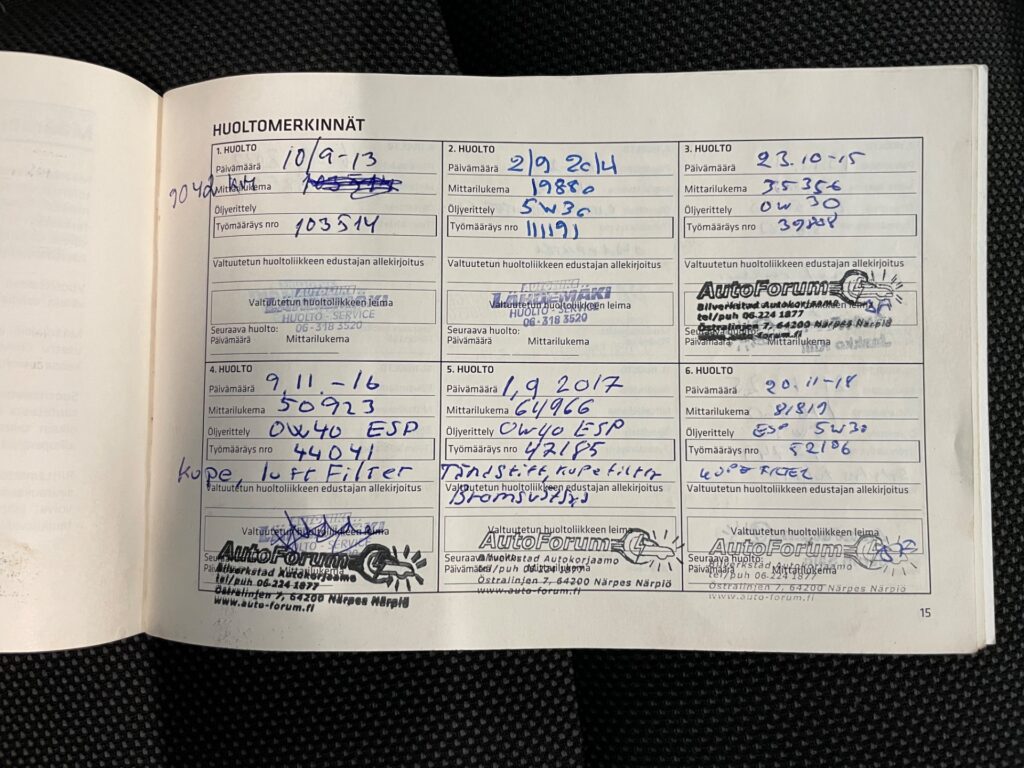 HUOLTOMERKINNÄT
1. HUOLTO
Päivämäärä 10/9-13
9042 km Mittarilukema
Öljyerittely
Työmääräys nro 103514
Valtuutetun huoltoliikkeen edustajan allekirjoitus
Valtuutetun huoltoliikkeen leima
HUOLTO - SERVICE
06 - 318 3520
Seuraava huolto:
Päivämäärä Mittarilukema
2. HUOLTO
Päivämäärä 2/9 2014
Mittarilukema 19880
Öljyerittely 5W30
Työmääräys nro 111191
Valtuutetun huoltoliikkeen edustajan allekirjoitus
LÄHDEMÄKI
Valtuutetun huoltoliikkeen leima
HUOLTO - SERVICE
06 - 318 3520
Seuraava huolto:
Päivämäärä Mittarilukema
3. HUOLTO
Päivämäärä 23.10-15
Mittarilukema 35356
Öljyerittely 0W 30
Työmääräys nro
Valtuutetun huoltoliikkeen edustajan allekirjoitus
AutoForum
Bilverkstad Autokorjaamo
tel/puh 06-224 1877
Östralinjen 7, 64200 Närpes Närpiö
Päivämäärä Mittarilukema
4. HUOLTO
Päivämäärä 9.11.-16
Mittarilukema 50923
Öljyerittely 0W40 ESP
Työmääräys nro 44041
Kupe, luft Filter
Valtuutetun huoltoliikkeen edustajan allekirjoitus
Valtuutetun huoltoliikkeen leima
Seuraava huolto:
AutoForum
Päivämäärä Mittarilukema
Bilverkstad Autokorjaamo
tel/puh 06-224 1877
Östralinjen 7, 64200 Närpes Närpiö
www.auto-forum.fi
5. HUOLTO
Päivämäärä 1,9 2017
Mittarilukema 64966
Öljyerittely 0W40 ESP
Työmääräys nro 47185
Tändstift, kupefilter
Valtuutetun huoltoliikkeen edustajan allekirjoitus
Valtuutetun huoltoliikkeen leima
AutoForum
Seuraava huolto:
Bilverkstad Autokorjaamo
Päivämäärä Mittarilukema
tel/puh 06-224 1877
Östralinjen 7, 64200 Närpes Närpiö
www.auto-forum.fi
6. HUOLTO
Päivämäärä 20.11-18
Mittarilukema 81819
Öljyerittely ESP 5W30
Työmääräys nro 52106
KUPE FILTER
Valtuutetun huoltoliikkeen edustajan allekirjoitus
Valtuutetun huoltoliikkeen leima
AutoForum
Seuraava huolto:
Bilverkstad Autokorjaamo
Päivämäärä Mittarilukema
tel/puh 06-224 1877
Östralinjen 7, 64200 Närpes Närpiö
www.auto-forum.fi
15